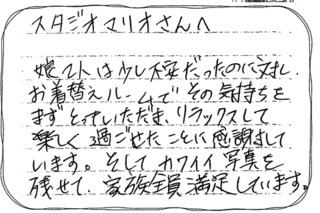 スタジオマリオさんへ
娘2人は少し不安だったのに対し、
お着替えルームでその気持ちを
まずとっていただき、リラックスして
楽しく過ごせたことに感謝して
います。そしてカワイイ写真を
残せて、家族全員満足しています。